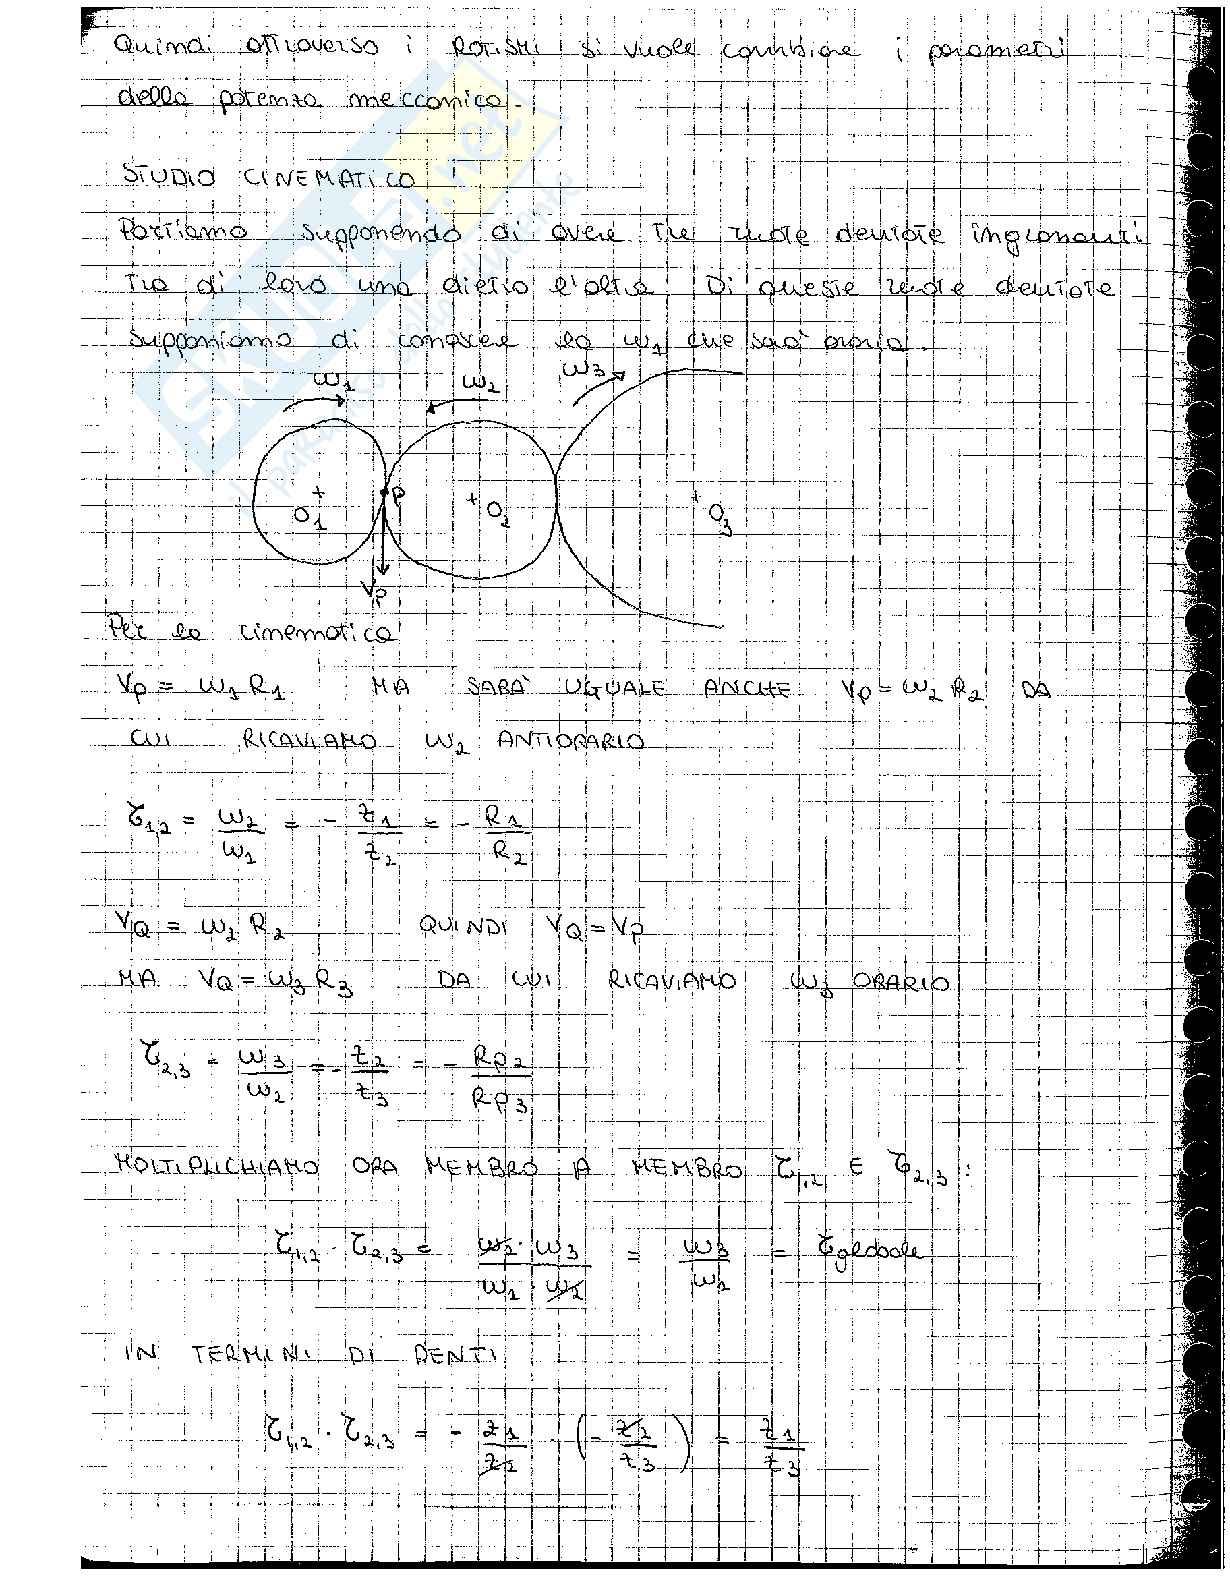 Quindi attraverso i ROTISMI si vuole cambiare i parametri
della potenza meccanica.
STUDIO CINEMATICO
Partiamo supponendo di avere tre ruote dentate ingrananti
tra di loro una dietro l'altra. Di queste ruote dentate
supponiamo di conoscere la ω1 che sarà oraria.
ω1 ω2 ω3
O1 P O2 O3
VP
Per la cinematica
VP = ω1 R1 MA SARÀ UGUALE ANCHE VP = ω2 R2 DA
CUI RICAVIAMO ω2 ANTIORARIO
τ1,2 = ω2/ω1 = - z1/z2 = - R1/R2
VQ = ω2 R2 QUINDI VQ = VP
MA VQ = ω3 R3 DA CUI RICAVIAMO ω3 ORARIO
τ2,3 = ω3/ω2 = - z2/z3 = - Rp2/Rp3
MOLTIPLICHIAMO ORA MEMBRO A MEMBRO τ1,2 E τ2,3 :
τ1,2 · τ2,3 = ω2 · ω3 / ω1 · ω2 = ω3/ω1 = τglobale
IN TERMINI DI DENTI
τ1,2 · τ2,3 = - z1/z2 · (- z2/z3) = z1/z3